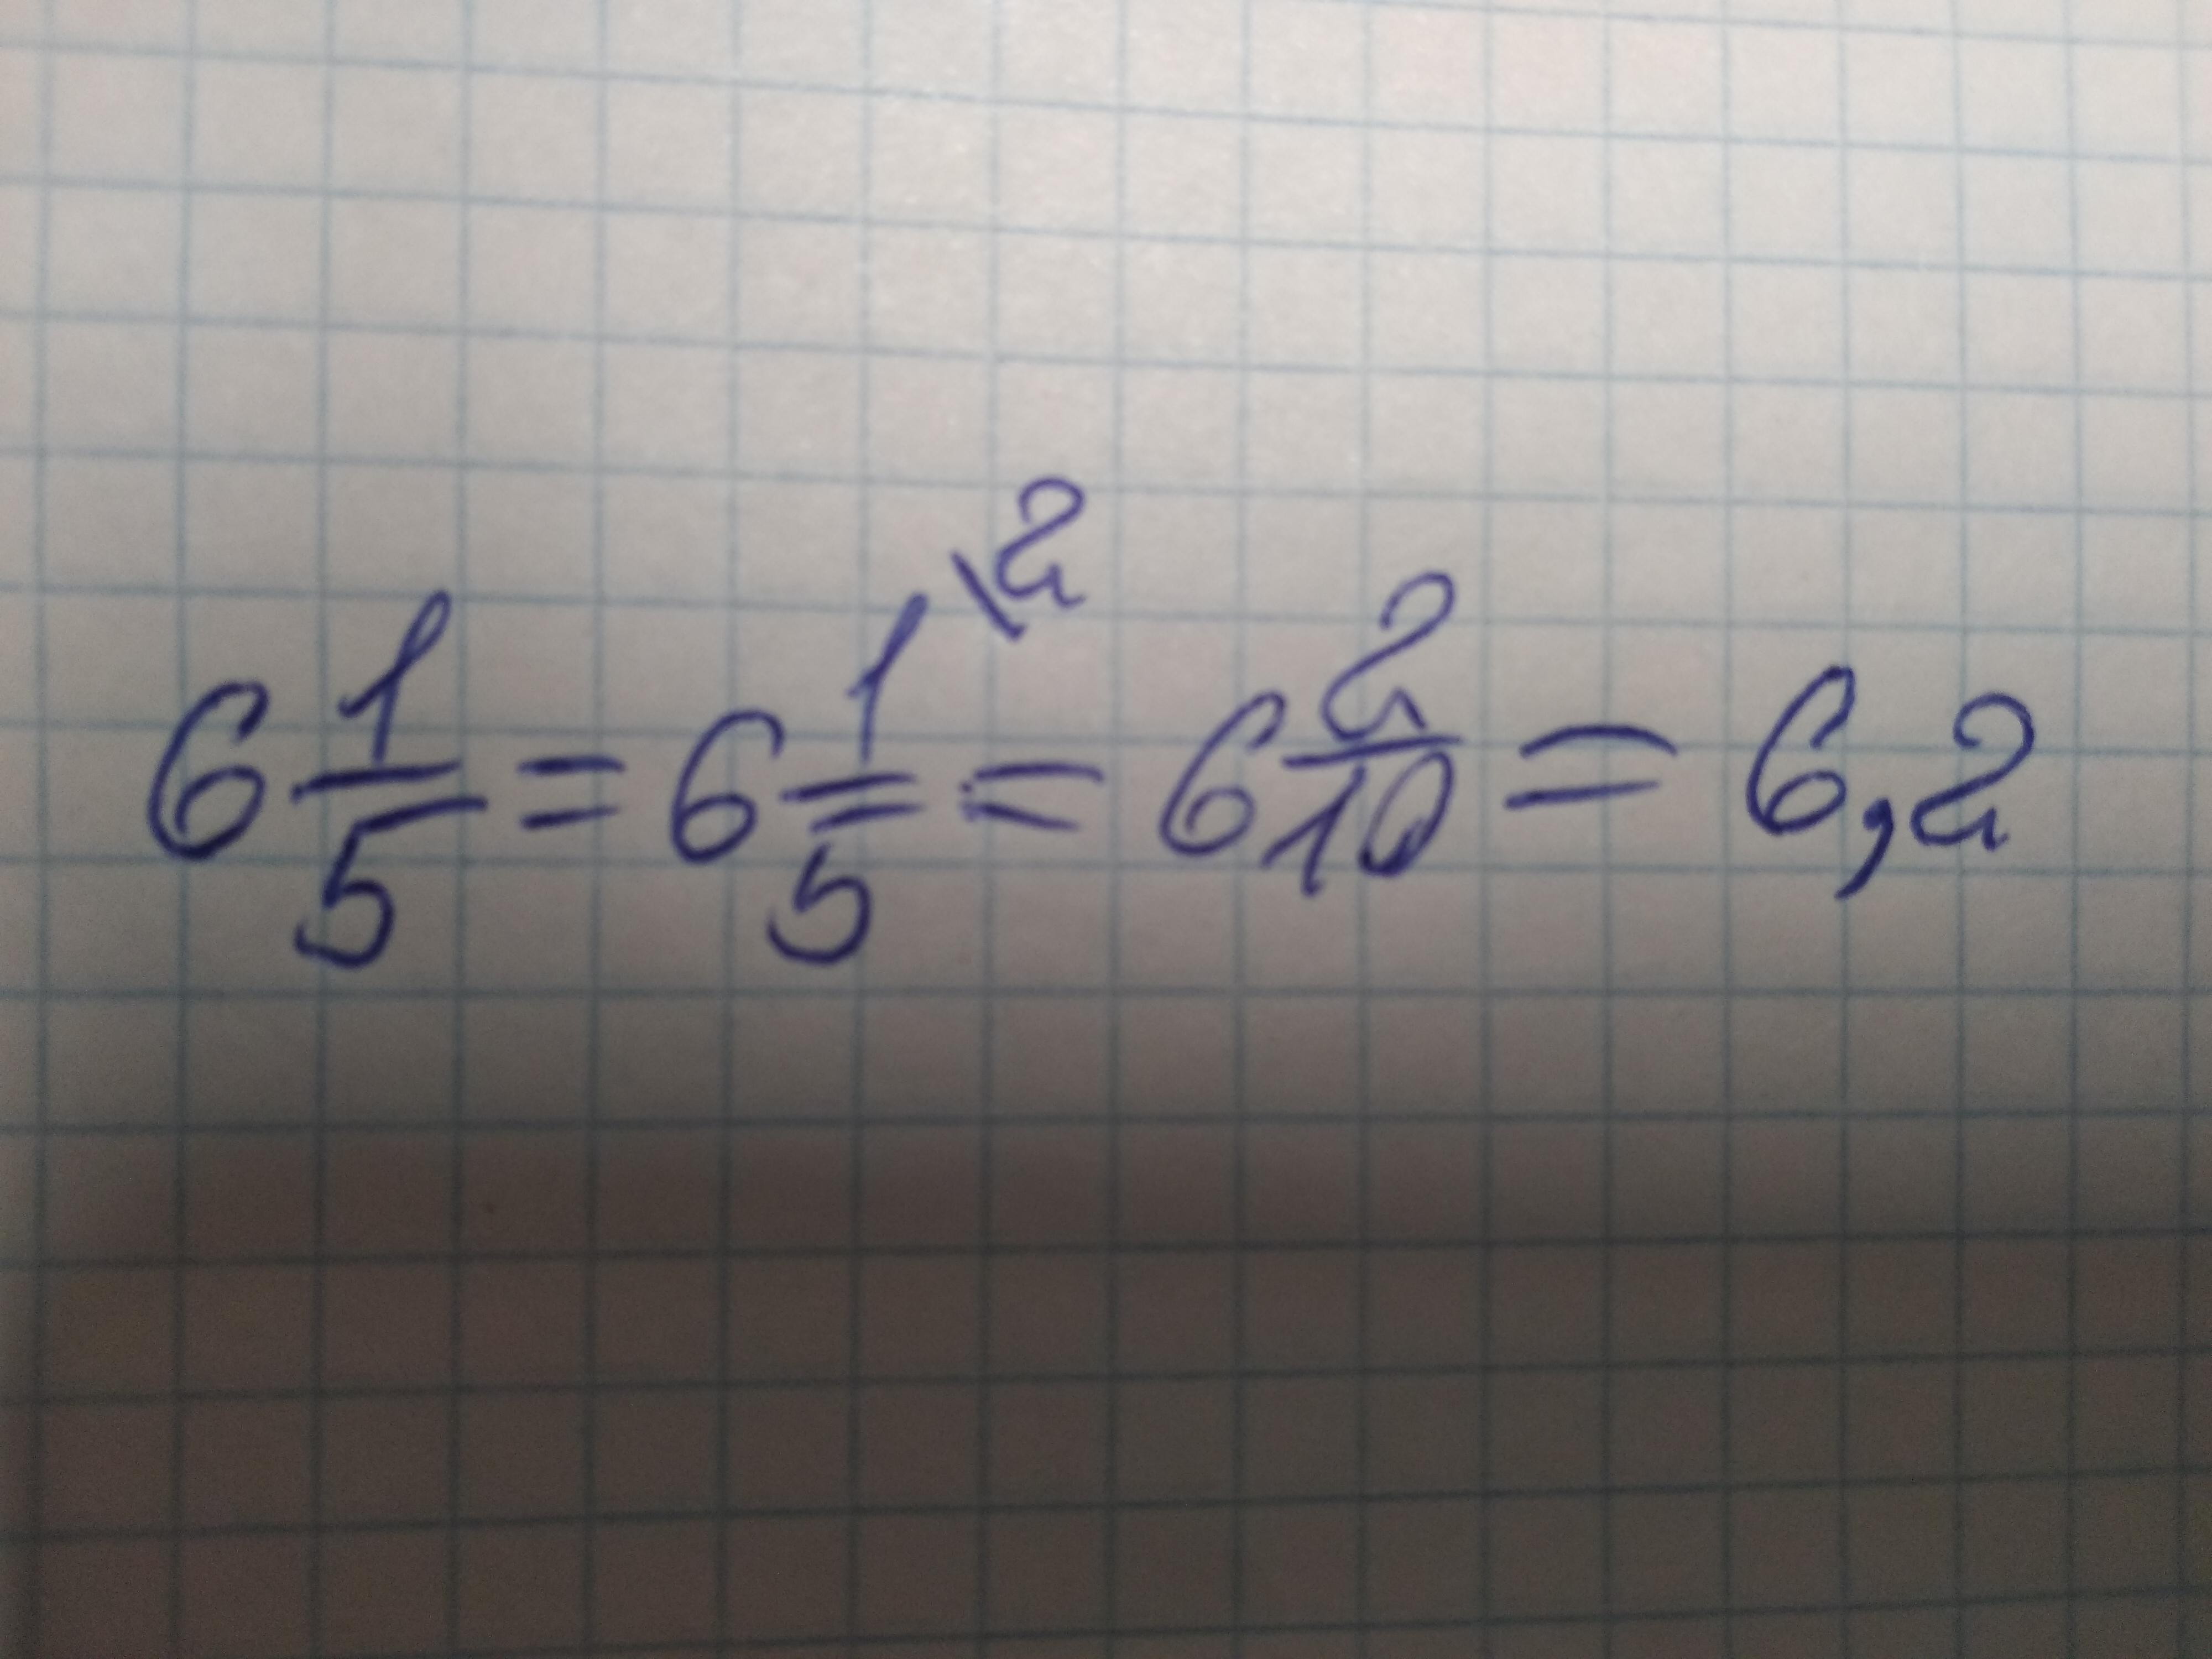 6 1/5 = 6 1\2/5 = 6 2/10 = 6,2